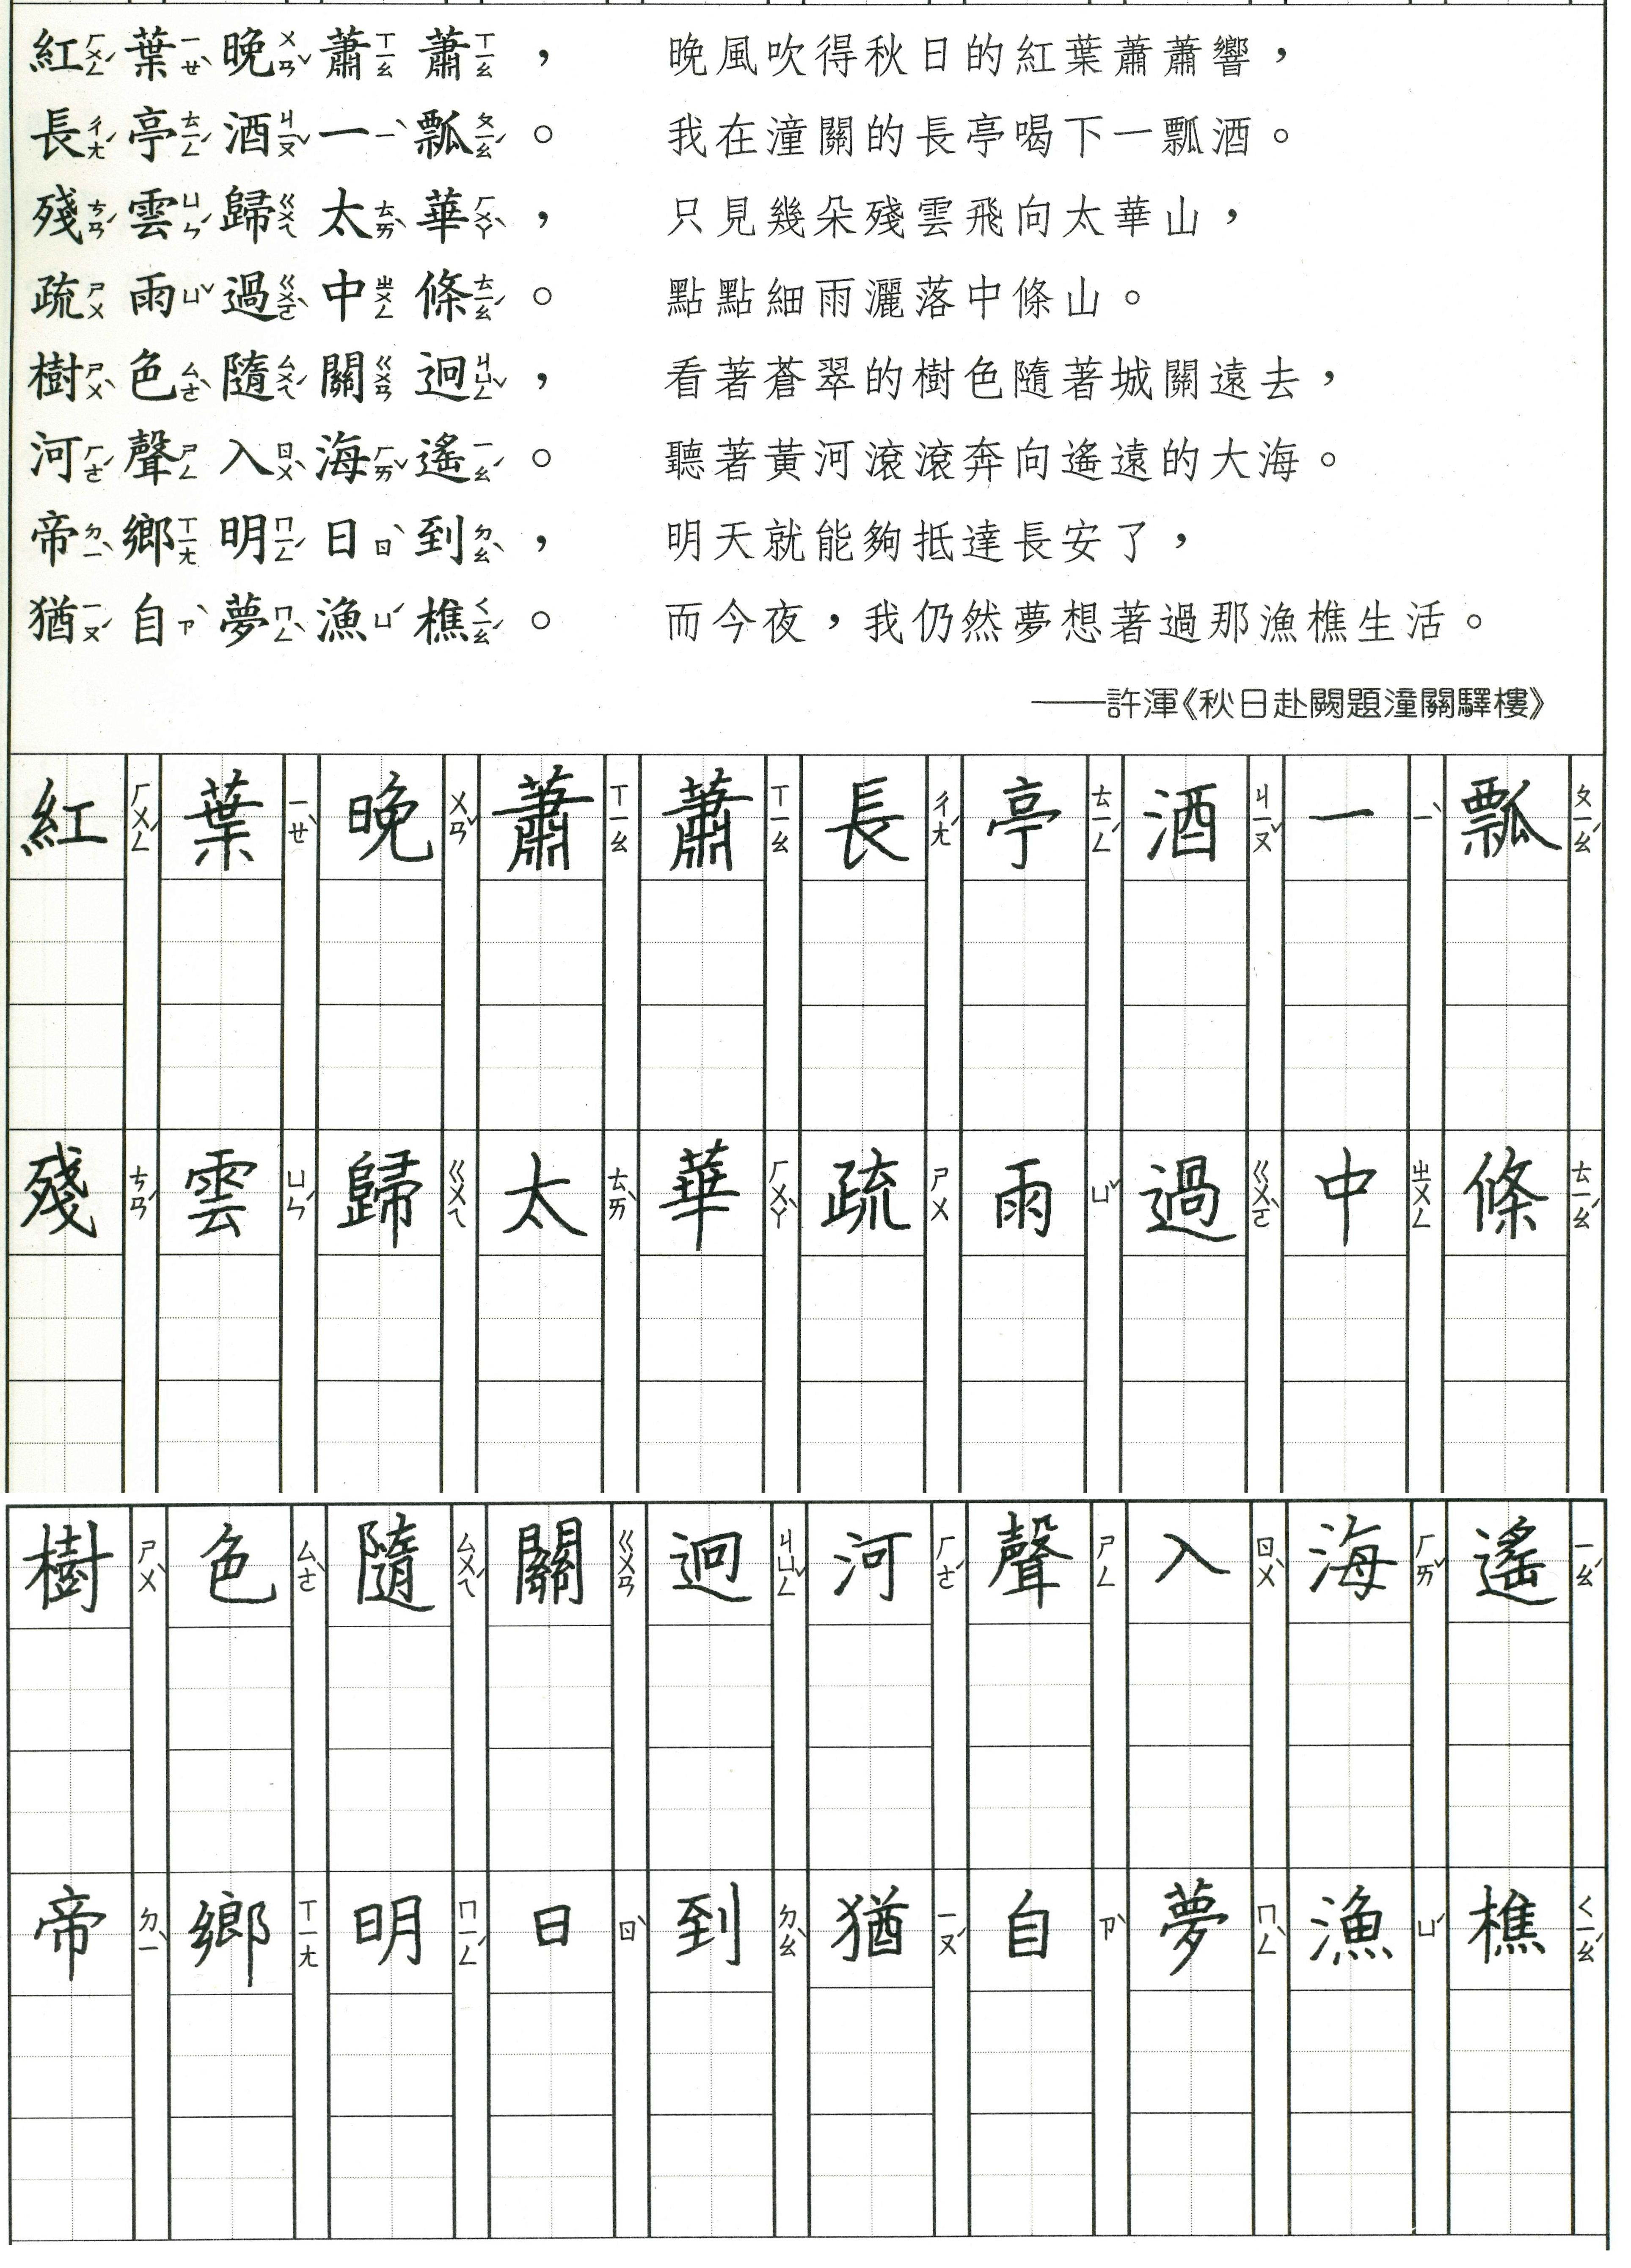 紅ㄏㄨㄥˊ葉ㄧㄝˋ晚ㄨㄢˇ蕭ㄒㄧㄠ蕭ㄒㄧㄠ， 晚風吹得秋日的紅葉蕭蕭響，
長ㄔㄤˊ亭ㄊㄧㄥˊ酒ㄐㄧㄡˇ一ㄧˋ瓢ㄆㄧㄠˊ。 我在潼關的長亭喝下一瓢酒。
殘ㄘㄢˊ雲ㄩㄣˊ歸ㄍㄨㄟ太ㄊㄞˋ華ㄏㄨㄚˋ， 只見幾朵殘雲飛向太華山，
疏ㄕㄨ雨ㄩˇ過ㄍㄨㄛˋ中ㄓㄨㄥ條ㄊㄧㄠˊ。 點點細雨灑落中條山。
樹ㄕㄨˋ色ㄙㄜˋ隨ㄙㄨㄟˊ關ㄍㄨㄢ迥ㄐㄩㄥˇ， 看著蒼翠的樹色隨著城關遠去，
河ㄏㄜˊ聲ㄕㄥ入ㄖㄨˋ海ㄏㄞˇ遙ㄧㄠˊ。 聽著黃河滾滾奔向遙遠的大海。
帝ㄉㄧˋ鄉ㄒㄧㄤ明ㄇㄧㄥˊ日ㄖˋ到ㄉㄠˋ， 明天就能夠抵達長安了，
猶ㄧㄡˊ自ㄗˋ夢ㄇㄥˋ漁ㄩˊ樵ㄑㄧㄠˊ。 而今夜，我仍然夢想著過那漁樵生活。
——許渾《秋日赴闕題潼關驛樓》
紅ㄏㄨㄥˊ葉ㄧㄝˋ晚ㄨㄢˇ蕭ㄒㄧㄠ蕭ㄒㄧㄠ長ㄔㄤˊ亭ㄊㄧㄥˊ酒ㄐㄧㄡˇ一ㄧˋ瓢ㄆㄧㄠˊ
殘ㄘㄢˊ雲ㄩㄣˊ歸ㄍㄨㄟ太ㄊㄞˋ華ㄏㄨㄚˋ疏ㄕㄨ雨ㄩˇ過ㄍㄨㄛˋ中ㄓㄨㄥ條ㄊㄧㄠˊ
樹ㄕㄨˋ色ㄙㄜˋ隨ㄙㄨㄟˊ關ㄍㄨㄢ迥ㄐㄩㄥˇ河ㄏㄜˊ聲ㄕㄥ入ㄖㄨˋ海ㄏㄞˇ遙ㄧㄠˊ
帝ㄉㄧˋ鄉ㄒㄧㄤ明ㄇㄧㄥˊ日ㄖˋ到ㄉㄠˋ猶ㄧㄡˊ自ㄗˋ夢ㄇㄥˋ漁ㄩˊ樵ㄑㄧㄠˊ